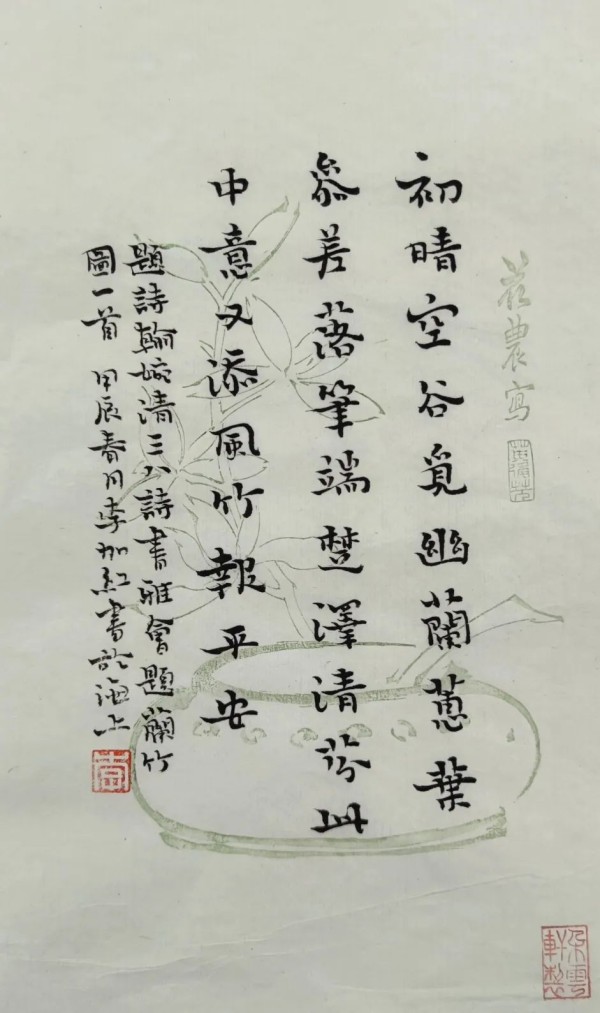 農寫
初晴空谷覓幽蘭蕙葉
參差落筆端楚澤清芬此
中意又添風竹報平安
題詩翰婉清三八詩書雅會題蘭竹
圖一首 甲辰春月李加紅書於海上
朵雲軒製